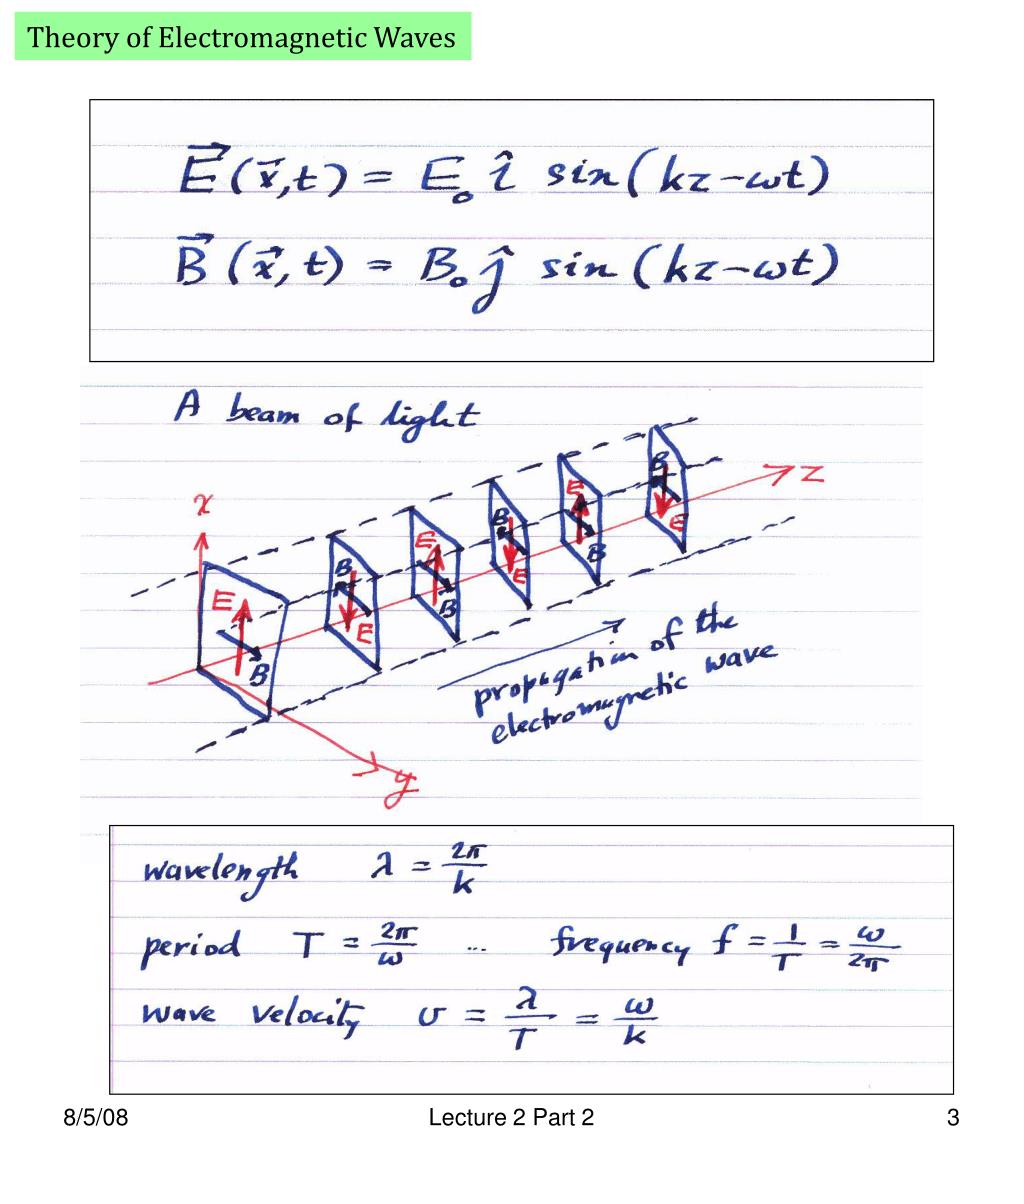 Theory of Electromagnetic Waves
E⃗(x⃗,t) = E₀ î sin(kz-ωt)
B⃗(x⃗,t) = B₀ ĵ sin(kz-ωt)
A beam of light
x
z
B
E
E
B
B
E
E
B
B
E
E
B
propagation of the
electromagnetic wave
y
wavelength λ = 2π/k
period T = 2π/ω ... frequency f = 1/T = ω/2π
wave velocity υ = λ/T = ω/k
8/5/08 Lecture 2 Part 2 3